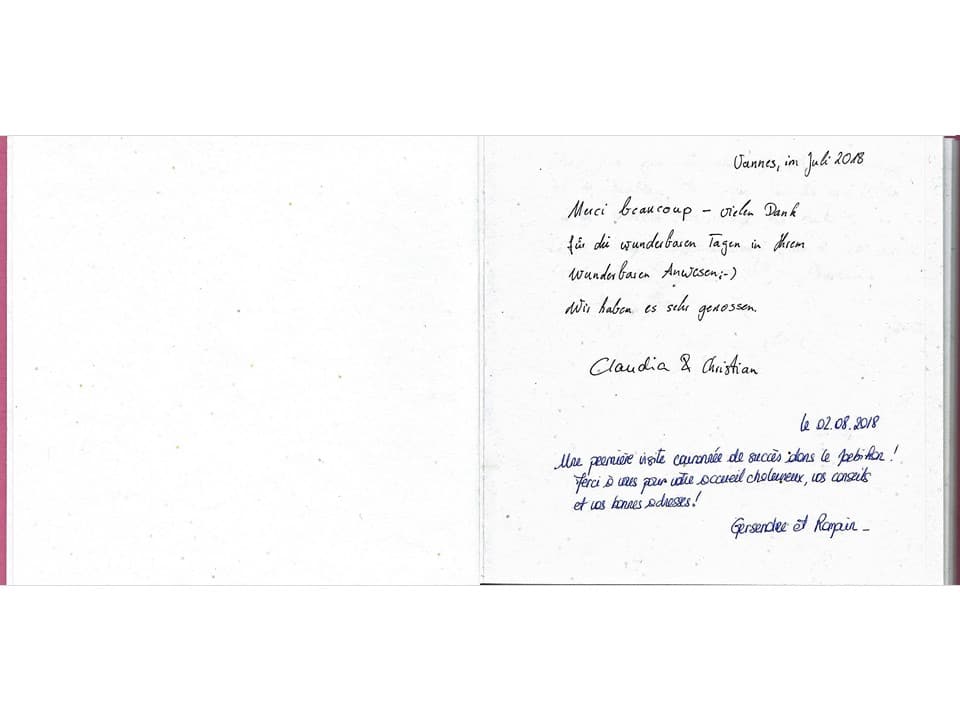 Vannes, im Juli 2018
Merci beaucoup – vielen Dank
für die wunderbaren Tagen in Ihrem
wunderbaren Anwesen;-)
Wir haben es sehr genossen.
Claudia & Christian
le 02.08.2018
Une première visite couronnée de succès dans le !
Merci à vous pour votre accueil chaleureux, vos conseils
et vos bonnes adresses!
et Romain –